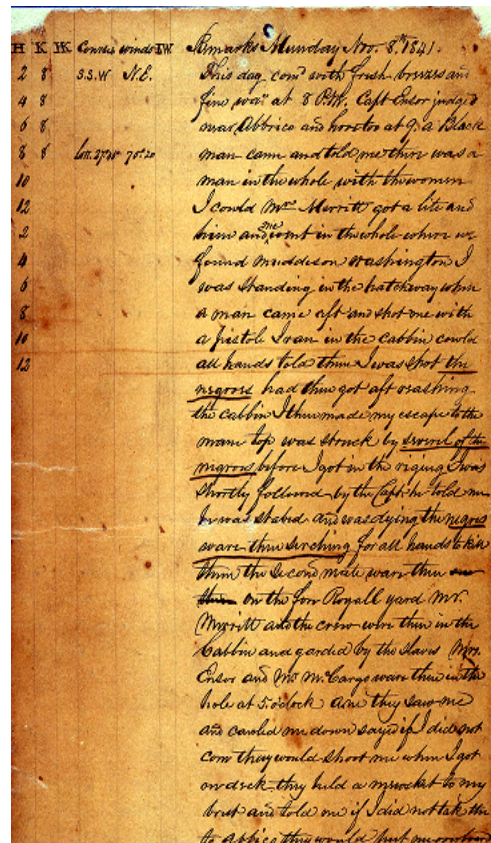 H K HK Courses winds LW Remarks Munday Nov. 8th 1841.
2 8 S.S.W N.E. This day com with fresh breezes and
4 8 fine war at 8 P.M. Capt Ensor judged
6 8 near Abbico and hove too at 9. a Black
8 8 Lon. 27.08 70.20 man came and told me there was a
10 man in the whole with the women
12 I could Mr Merritt got a lite and
2 him and me went in the whole where we
4 found Maddeson washington I
6 was standing in the hatchway when
8 a man came aft and shot me with
10 a pistole I ran in the cabbin could
12 all hands told them I was shot the
negroes had then got aft
the cabbin I then made my escape to the
mane top was struck by several of the
negroes before I got in the riging I was
shortly followed by the Capt. he told me
he was stabed and was dying the negros
ware then serching for all hands to kill
them the second mate ware then
on the fore Royall yard Mr.
Merritt and the crew were then in the
Cabbin and garded by the slaves Mrs.
Ensor and Mr McCargo ware then in the
hole at 5.oclock they saw me
and cauled me down if I did not
com they would shoot me when I got
on deck they held a muscket to my
brest and told me if I did not tak the
to Abbico they would